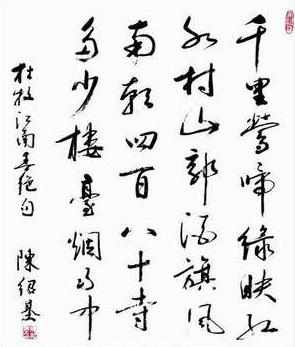 千里鶯啼綠映红
水村山郭酒旗风
南朝四百八十寺
多少樓臺烟雨中
杜牧江南春绝句
陳紹基